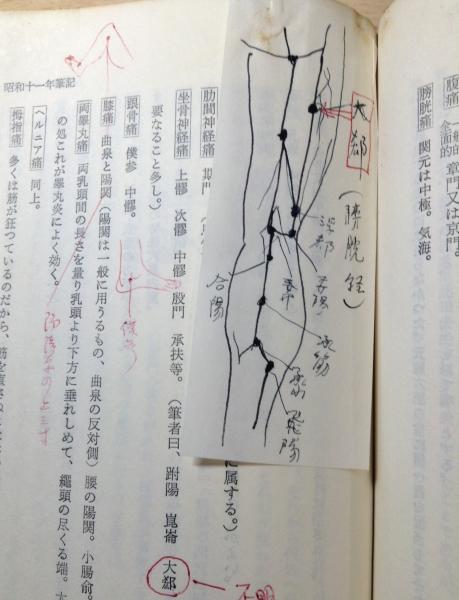 腹痛
章門又は京門。
膀胱痛 関元は中極。気海。
大郄
(膀胱経)
合陽
承筋
飛陽
に属する。)
肋間神経痛 期門
坐骨神経痛 上髎 次髎 中髎 殷門 承扶等。(筆者曰、跗陽 崑崙 大郄
要なること多し。)
頭骨痛 僕参 中髎。
膝痛 曲泉と陽関(陽関は一般に用うるもの、曲泉の反対側)腰の陽関。小腸俞。
両睾丸痛 両乳頭間の長さを量り乳頭より下方に垂れしめて、縄頭の尽くる端。
の処これが睾丸炎によく効く。
ヘルニア痛 同上。
拇指痛 多くは筋が狂つているのだから、筋を
昭和十一年筆記
不明